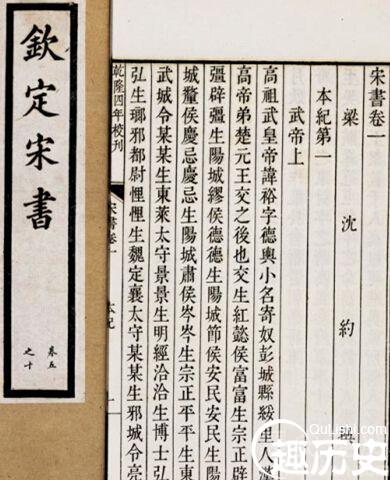 欽定宋書
卷五
之十
宋書卷一
梁 沈 約 撰
本紀第一
武帝上
高祖武皇帝諱裕字德輿小名寄奴彭城縣綏里人漢
高帝弟楚元王交之後也交生紅懿侯富富生宗正辟
彊辟彊生陽城繆侯德德生陽城節侯安民安民生陽
城釐侯慶忌慶忌生陽城肅侯岑岑生宗正平平生東
武城令某某生東萊太守景景生明經洽洽生博士弘
弘生瑯邪都尉悝悝生魏定襄太守某某生邪城令亮
乾隆四年校刊
宋書卷一
本紀
一
QuLishi.com
趣历史